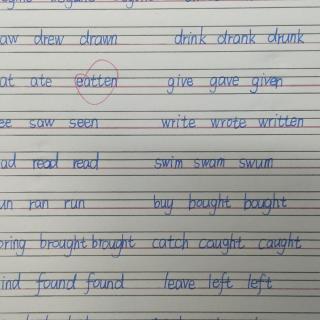 aw drew drawn drink drank drunk
at ate eatten give gave given
ee saw seen write wrote written
ad read read swim swam swum
un ran run buy bought bought
bring brought brought catch caught caught
ind found found leave left left